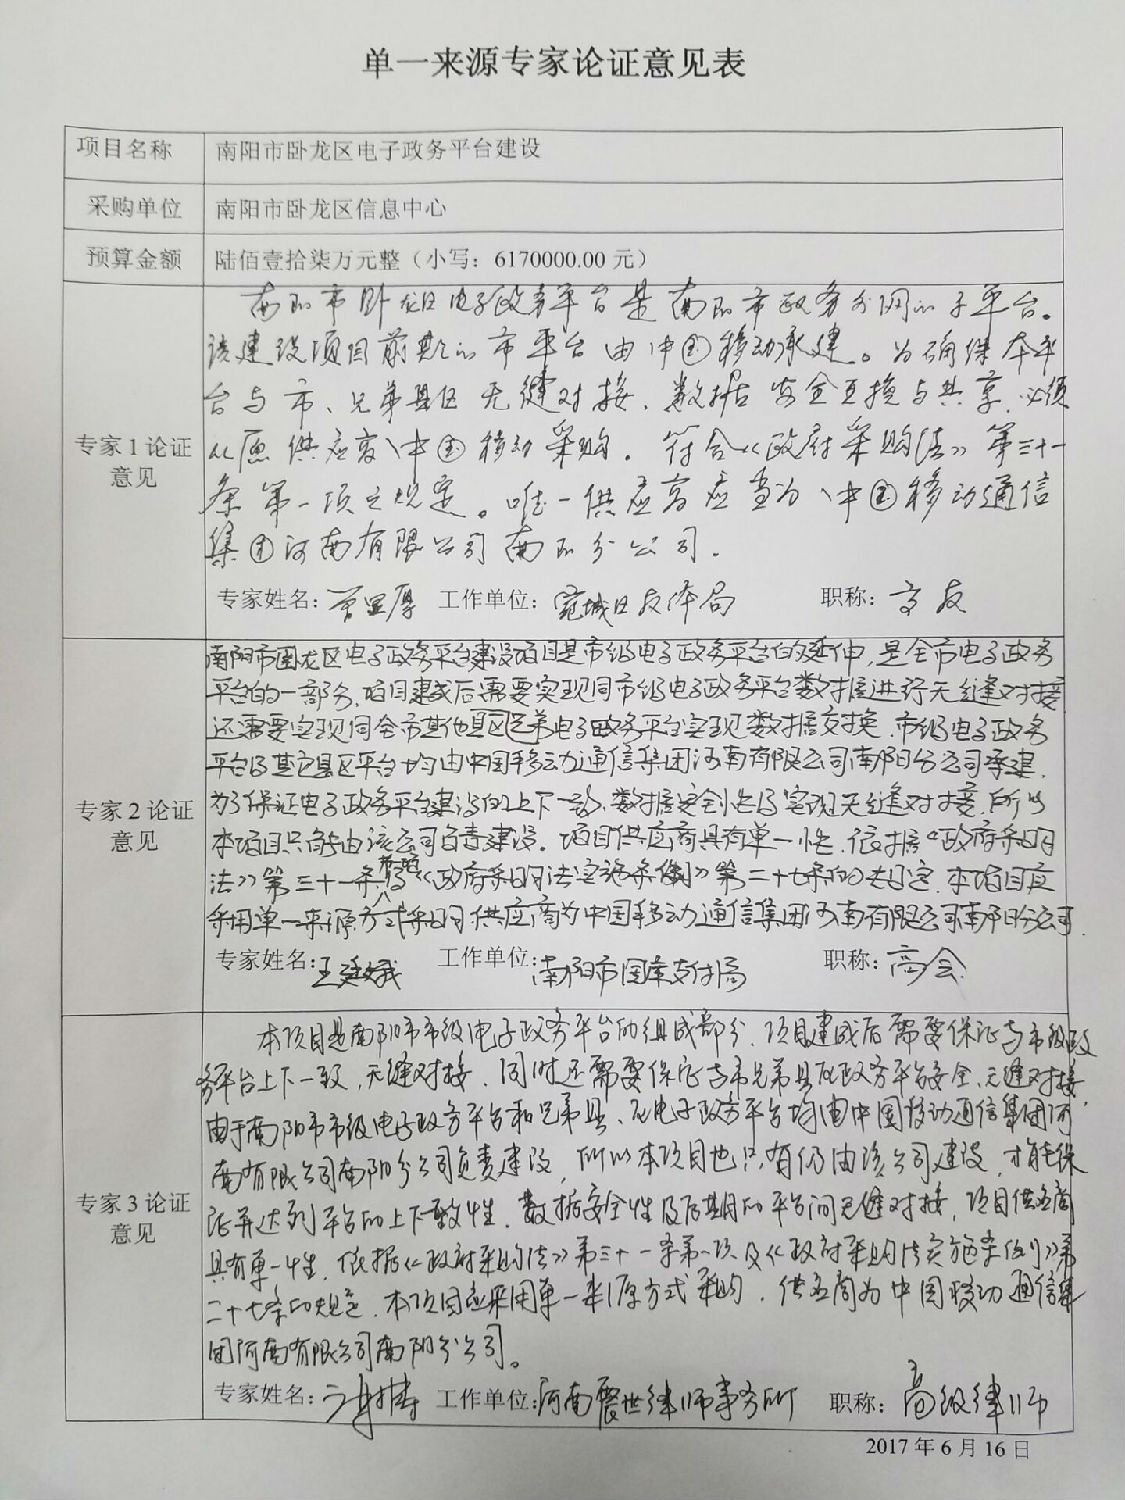 单一来源专家论证意见表
项目名称 南阳市卧龙区电子政务平台建设
采购单位 南阳市卧龙区信息中心
预算金额 陆佰壹拾柒万元整（小写：6170000.00 元）
专家 1 论证意见
南阳市卧龙区电子政务平台是南阳市政务外网的子平台。
该建设项目前期的市平台由中国移动承建。为确保本平
台与市、兄弟县区无缝对接、数据安全互换与共享，必须
从原供应商中国移动采购。符合《政府采购法》第三十一
条第一项之规定。唯一供应商应当为中国移动通信
集团河南有限公司南阳分公司。
专家姓名： 工作单位：宛城区文体局 职称：
专家 2 论证意见
南阳市卧龙区电子政务平台建设项目是市级电子政务平台的延伸，是全市电子政务
平台的一部分，项目建成后需要实现同市级电子政务平台数据进行无缝对接
还需要实现同全市其他县区兄弟电子政务平台实现数据交换，市级电子政务
平台及其它县区平台均由中国移动通信集团河南有限公司南阳分公司承建，
为了保证电子政务平台建设的上下一致，数据安全性及实现无缝对接，所以
本项目只能由该公司负责建设，项目供应商具有单一性，依据《政府采购
法》第三十一条第一项及《政府采购法实施条例》第二十七条的规定，本项目应
采用单一来源方式采购，供应商为中国移动通信集团河南有限公司南阳分公司.
专家姓名：王廷斌 工作单位：南阳市国库支付局 职称：高会
专家 3 论证意见
本项目是南阳市市级电子政务平台的组成部分，项目建成后需要保证与市级政
务平台上下一致，无缝对接，同时还需要保证与市兄弟县区政务平台安全、无缝对接，
由于南阳市市级电子政务平台和兄弟县、区电子政务平台均由中国移动通信集团河
南有限公司南阳分公司负责建设，所以本项目也只有仍由该公司建设，才能保
证并达到平台的上下一致性，数据安全性及后期的平台间无缝对接，项目供应商
具有单一性，依据《政府采购法》第三十一条第一项及《政府采购法实施条例》第
二十七条的规定，本项目应采用单一来源方式采购，供应商为中国移动通信集
团河南有限公司南阳分公司。
专家姓名： 工作单位：河南震世律师事务所 职称：高级律师
2017 年 6 月 16 日